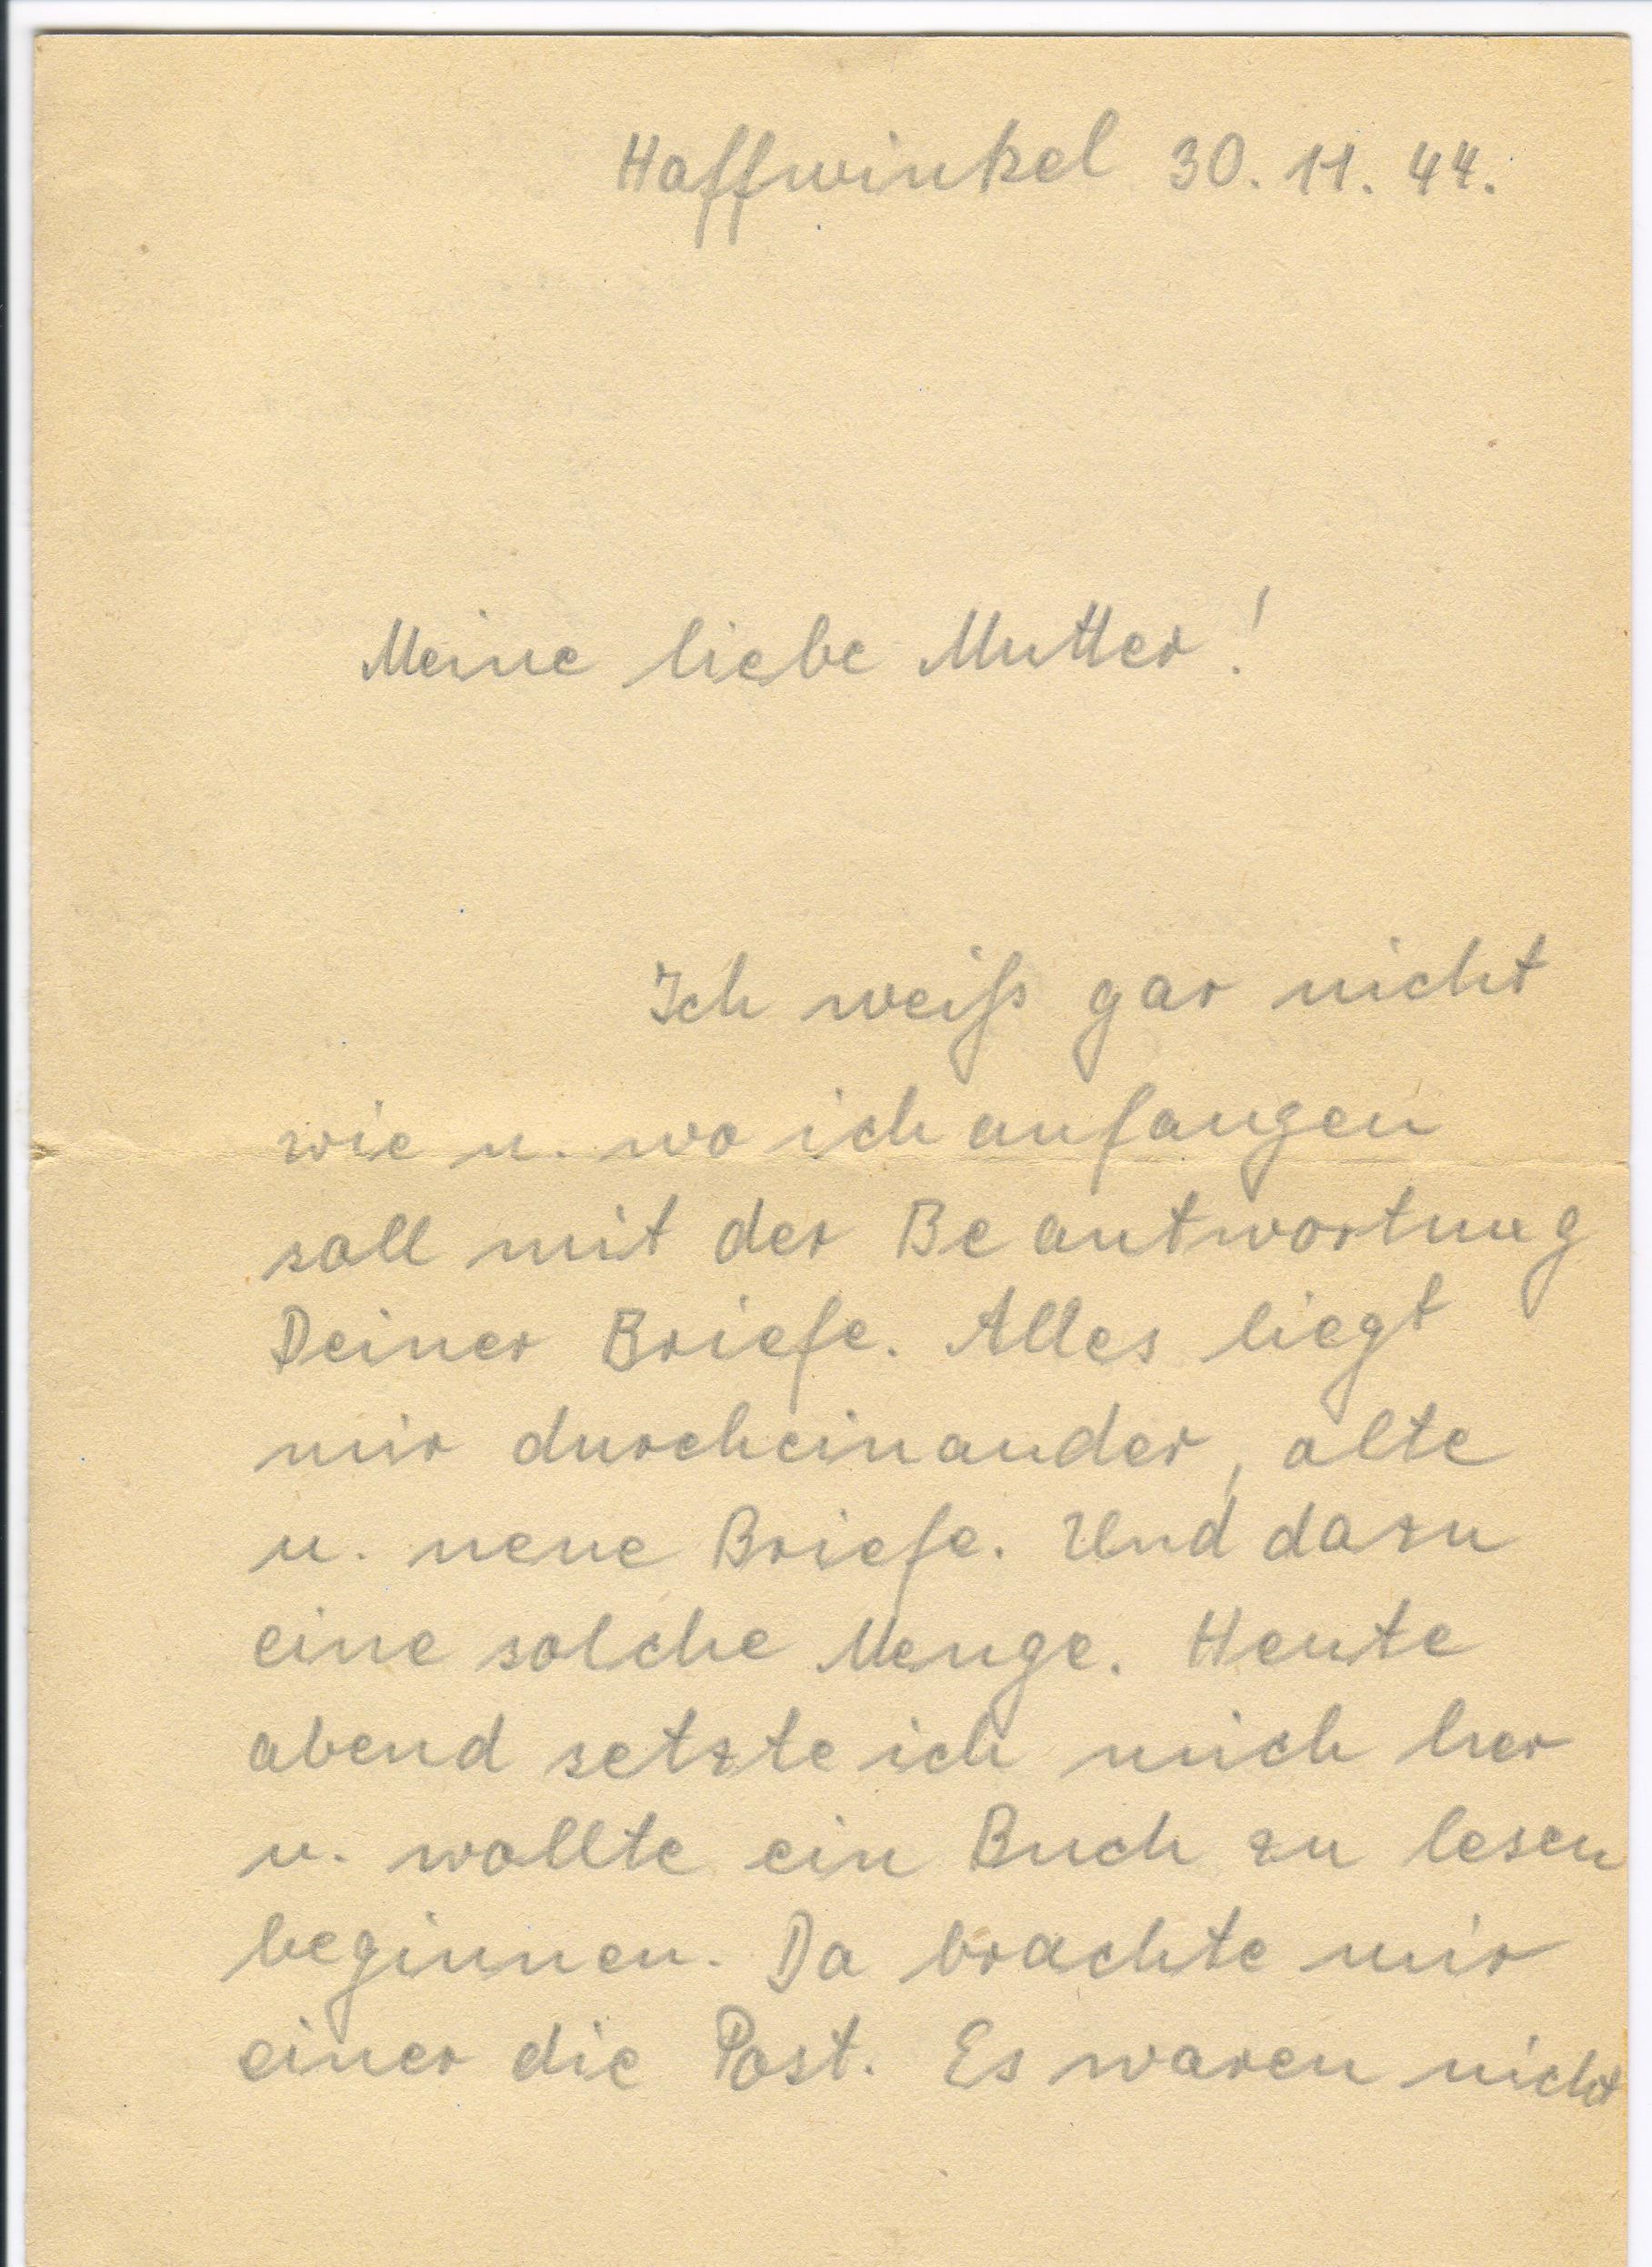 Haffwinkel 30. 11. 44.
Meine liebe Mutter!
Ich weiß gar nicht
wie u. wo ich anfangen
soll mit der Beantwortung
Deiner Briefe. Alles liegt
mir durcheinander, alte
u. neue Briefe. Und dazu
eine solche Menge. Heute
abend setzte ich mich her
u. wollte ein Buch zu lesen
beginnen. Da brachte mir
einer die Post. Es waren nicht